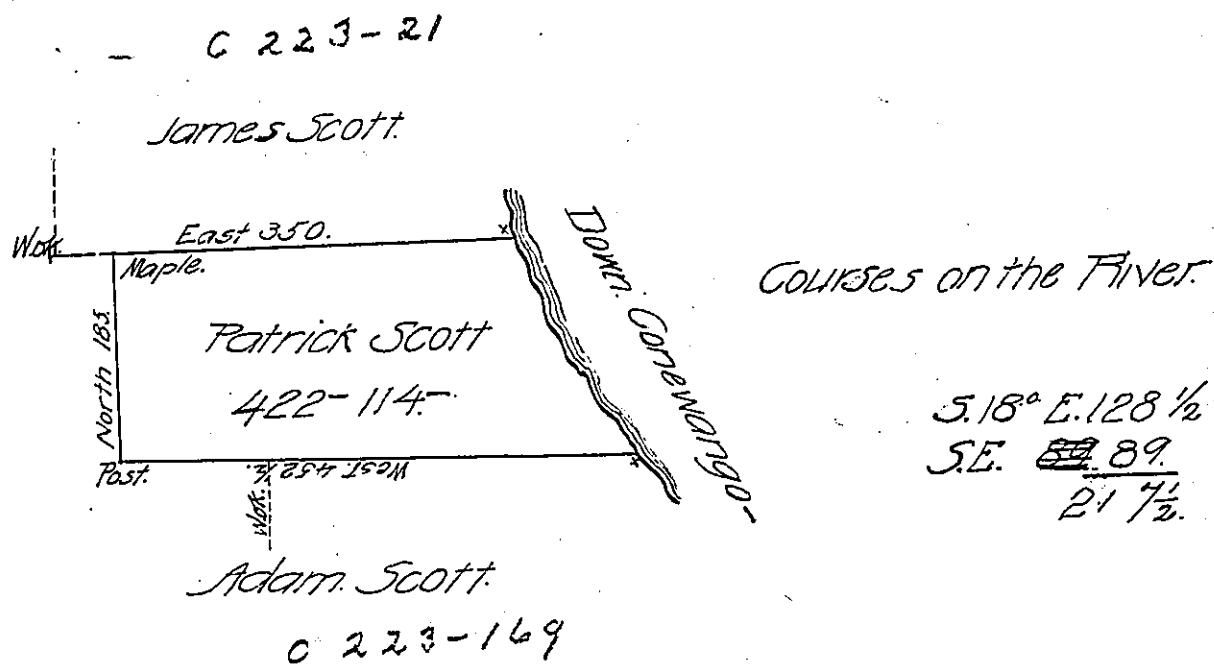 C 223-21
James Scott.
Wok.
East 350.
Maple.
North 185.
Patrick Scott
422-114-
Post.
West 452 1/2.
Wok.
Adam. Scott.
C 223-169
Down. Conewango-
Courses on the River.
S.18° E.128 1/2
S.E. 89. 89.
217 1/2.